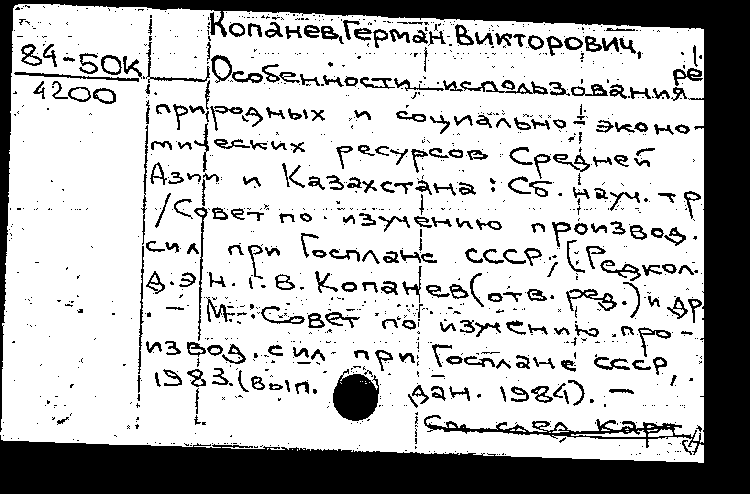 Копанев, Герман Викторович,
84-50К
4200
ре
Особенности использования
природных и социально-эконо-
мических ресурсов Средней
Азии и Казахстана: Сб. науч. тр
/Совет по изучению производ.
сил при Госплане СССР; [Редкол.
д.э.н. Г.В. Копанев (отв. ред.) и др.
. — М.: Совет по изучению про-
извод. сил при Госплане СССР,
1983. (вып. дан. 1984). —
См. след. карт